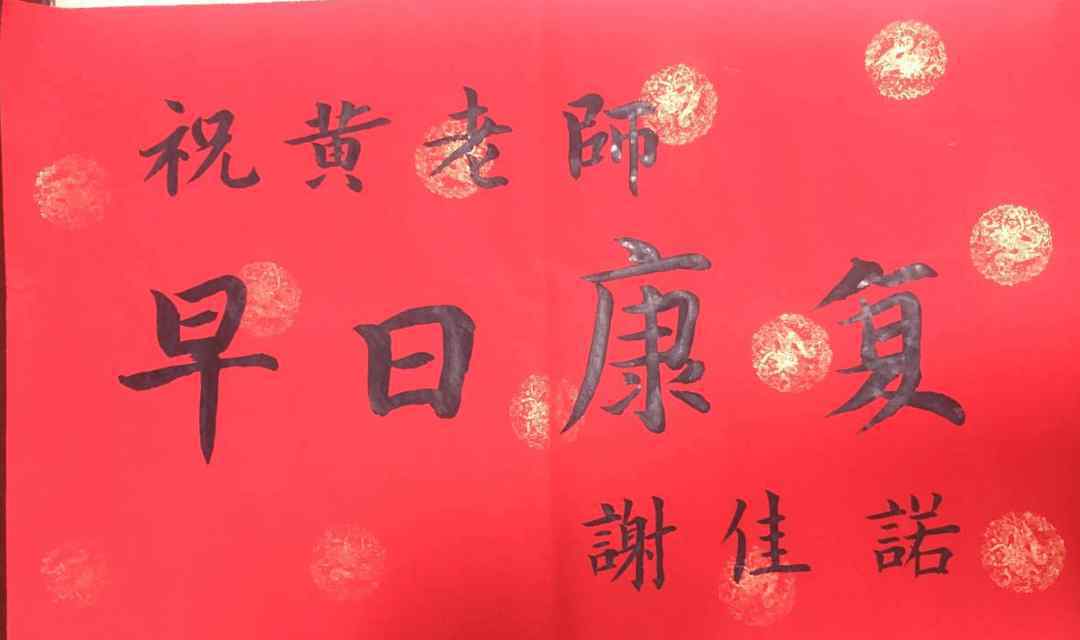 祝黄老師
早日康复
謝佳諾